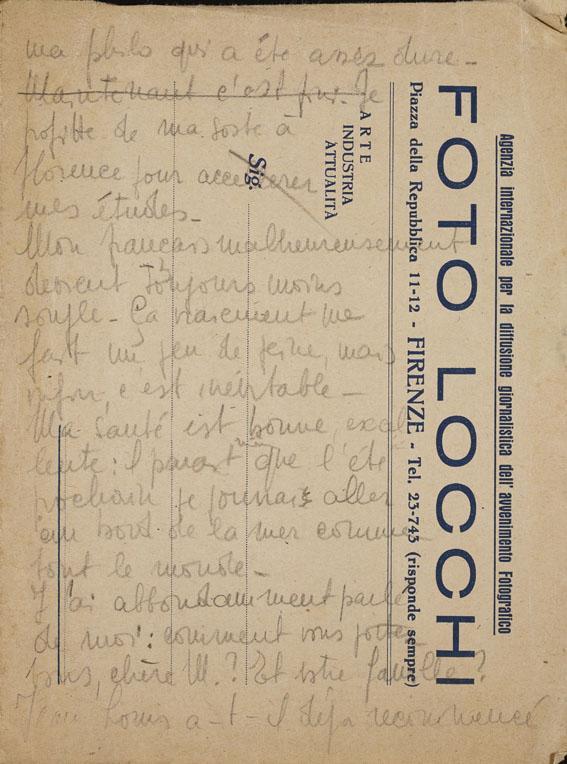 ma philo qui a été assez dure -
Maintenant c'est fini. Je
profite de ma soste à
florence pour accelerer
mes études -
Mon français malheureusement
devient toujours moins
souple - Ça vraiment me
fait un peu de peine, mais
enfin, c'est inévitable -
Ma santé est bonne, excel
lente : il parait même que l'été
prochain je pourrais aller
au bord de la mer comme
tout le monde -
J'ai abbondamment parlé
de moi : comment vous portez
vous, chère M. ? Et votre famille ?
Jean Louis a-t-il déja recommencé
Agenzia internazionale per la diffusione giornalistica dell'avvenimento Fotografico
FOTO LOCCHI
Piazza della Repubblica 11-12 - FIRENZE - Tel. 23-743 (risponde sempre)
ARTE
INDUSTRIA
ATTUALITÀ
Sig.